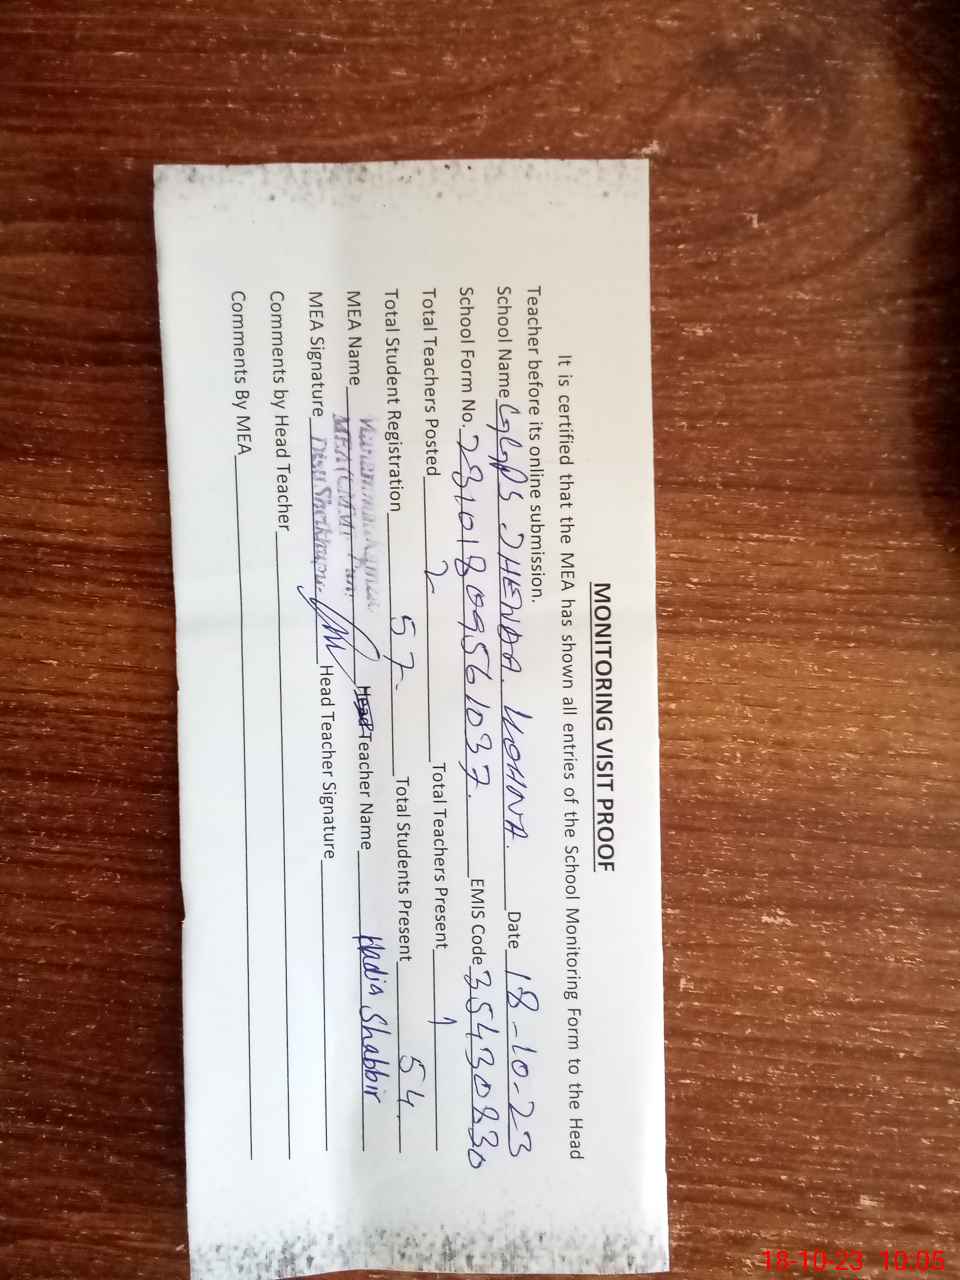 MONITORING VISIT PROOF
It is certified that the MEA has shown all entries of the School Monitoring Form to the Head
Teacher before its online submission.
School Name GGPS JHENDA KOHNA. Date 18-10-23
School Form No. 23101809561037. EMIS Code 35430830
Total Teachers Posted 2 Total Teachers Present 1
Total Student Registration 57. Total Students Present 54
MEA Name Muhammad Head Teacher Name Hadia Shabbir
MEA
MEA Signature Head Teacher Signature
Comments by Head Teacher
Comments By MEA
18-10-23 10:05